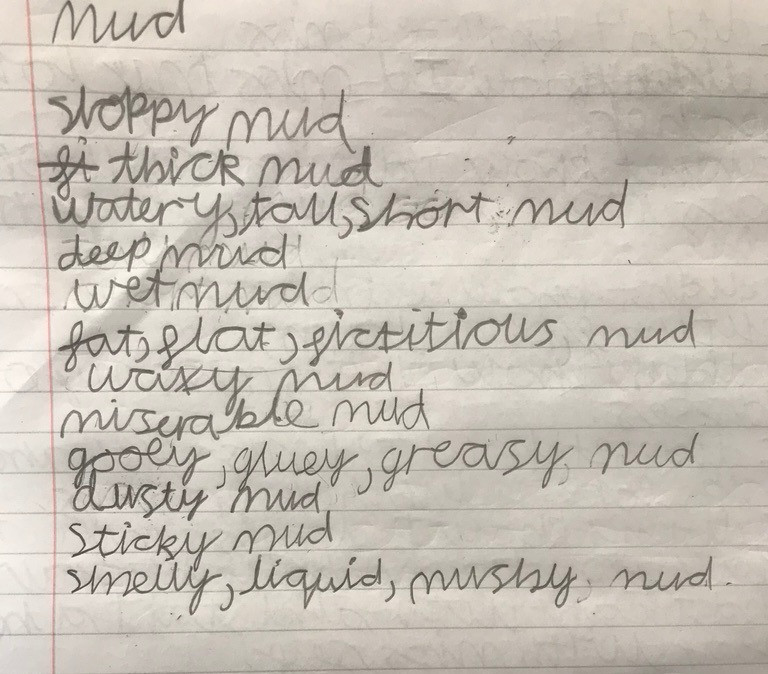 Mud
sloppy mud
thick mud
watery, tall, short mud
deep mud
wet mud
fat, flat, fictitious mud
waxy mud
miserable mud
gooey, gluey, greasy mud
dusty mud
sticky mud
smelly, liquid, mushy, mud.